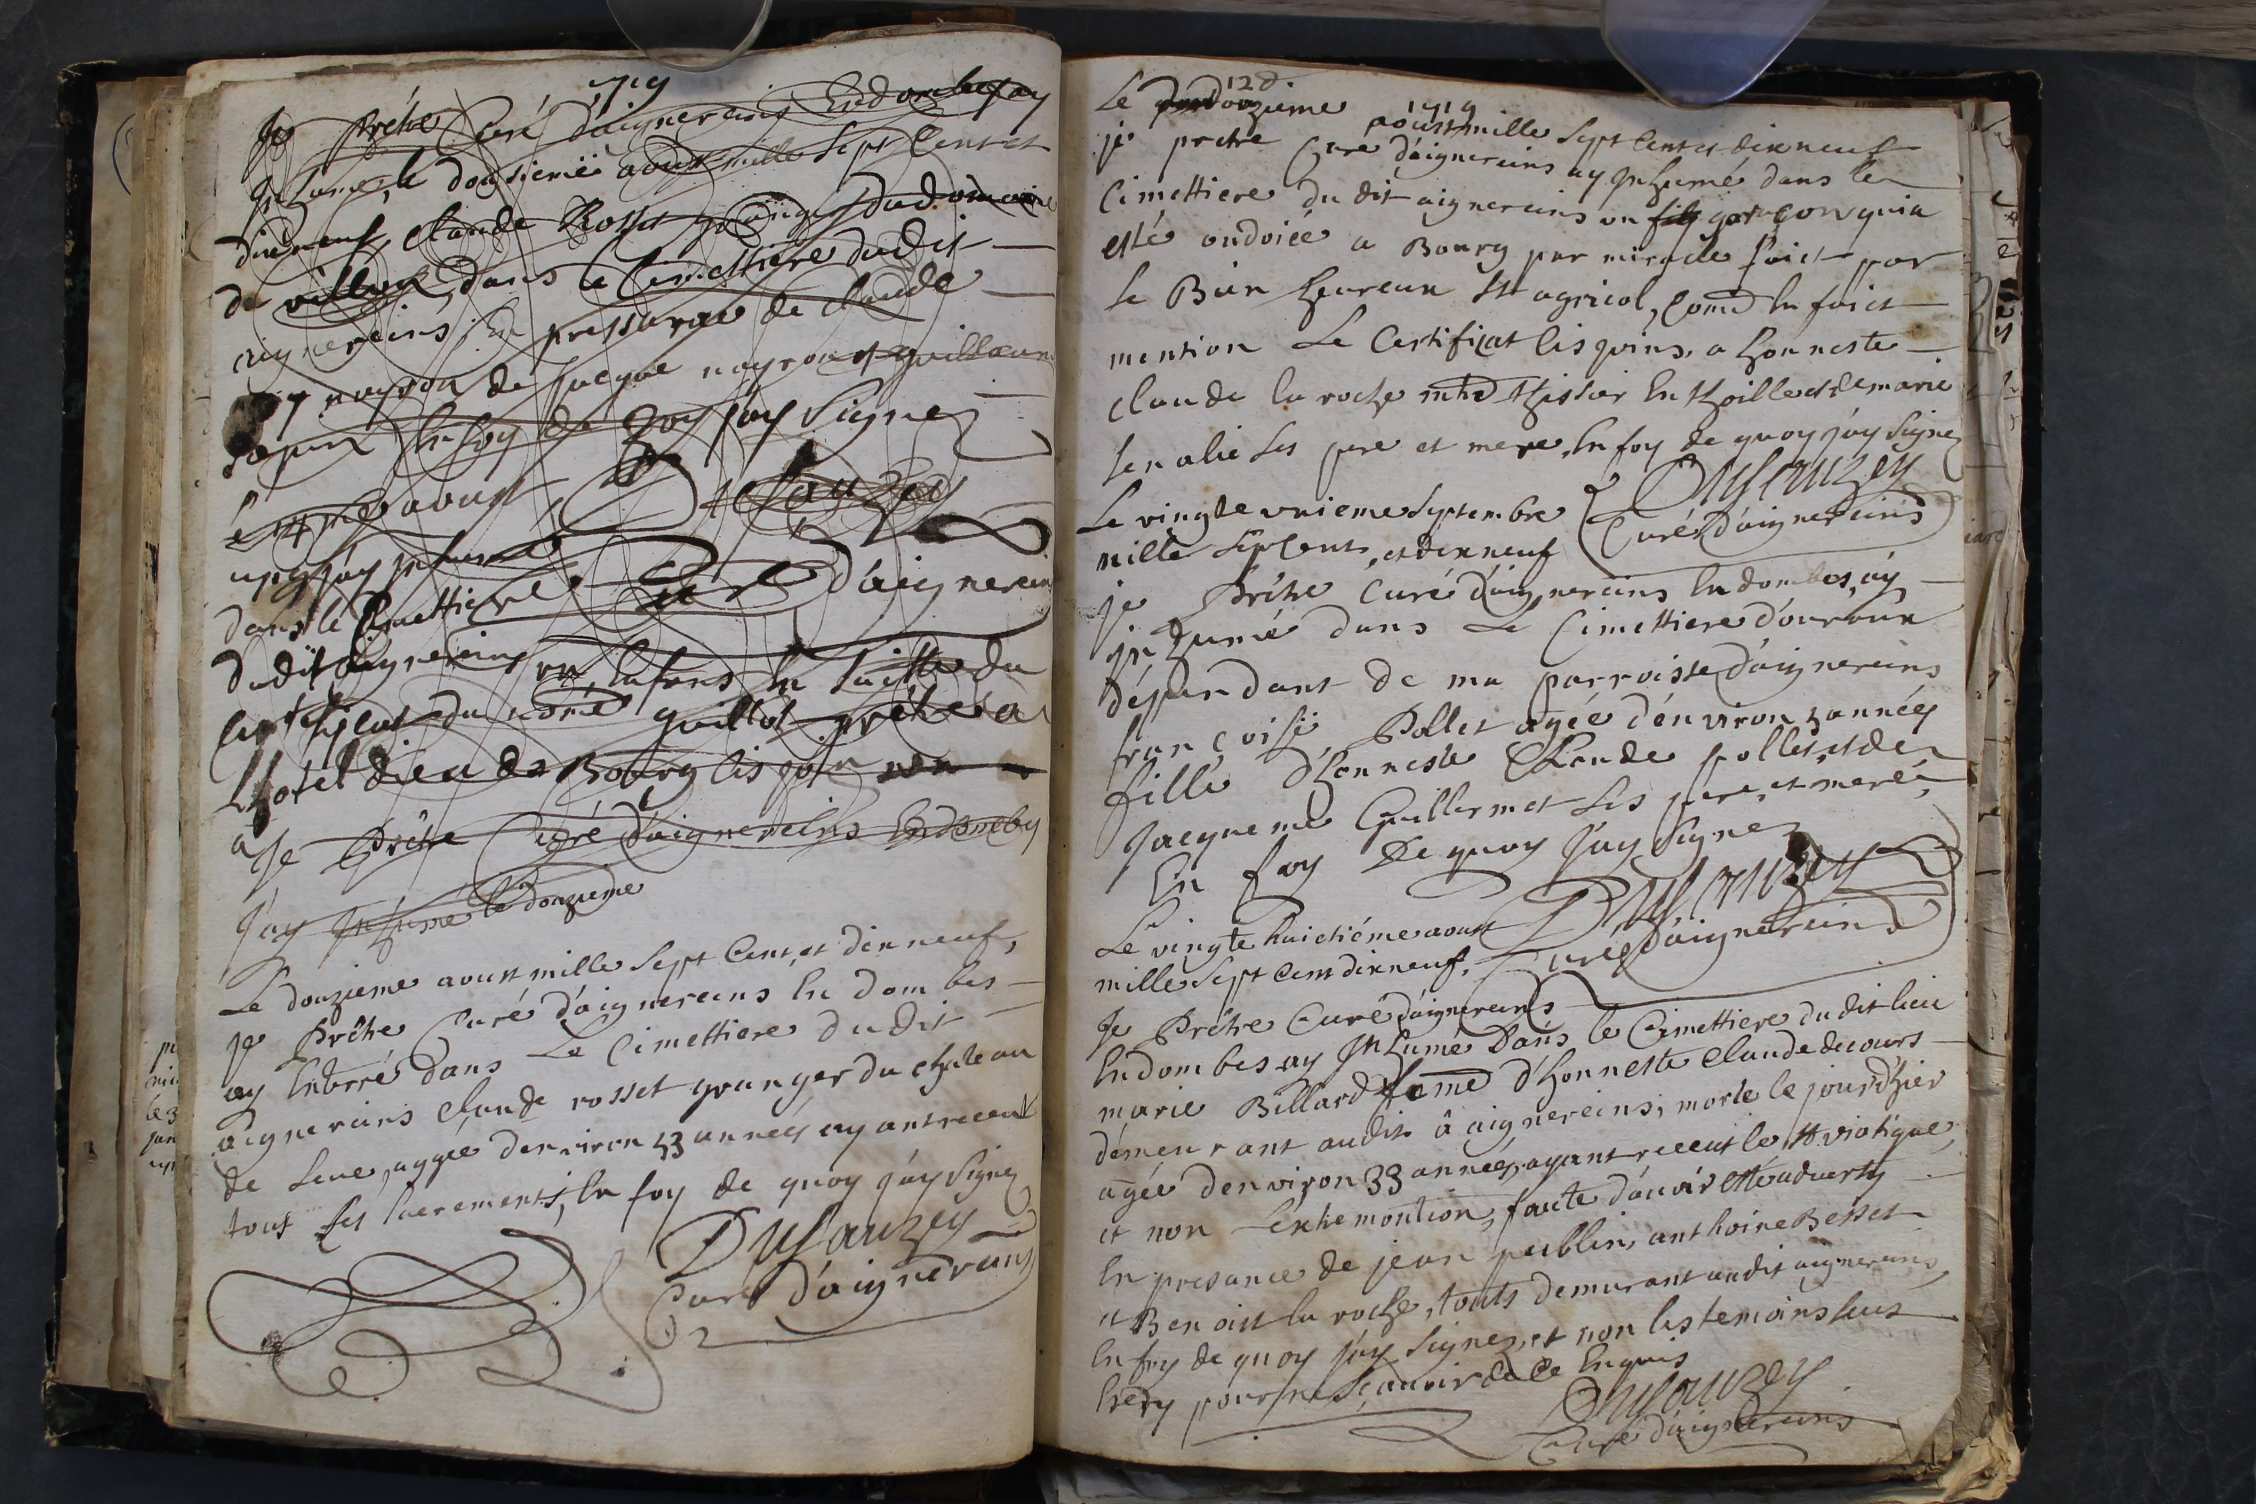 1719
Je Prêtre Curé d'aignereins En dombes ay
Inhumé le dousiemë aoust mille Sept Cent et
dixneuf, Claude Rosset granger du domaine
de dans le Cimettiere du dit
aignereins En pressance de claude
nayrou de Jacque nayrou et guillaume
En foy de quoy J'ay Signez
le 14me aoust Dusauzey
1719 J'ay Inhumé
dans le Cimettiere Curé d'aignereins
du dit aignereins un Enfans En Suitte du
Certificat du nomé guillot prêtre a
Lhotel dieu de Bourg lisquin
a Je Prêtre Curé d'aignereins En Dombes
J'ay Inhumé le douzieme
Le douzieme aoust mille Sept Cent, et dixneuf,
Je Prêtre Curé d'aignereins En dombes
ay Enterré dans Le Cimettiere du dit
aignereins Claude rosset granger du chateau
de Seve, aggée denviron 53 annéy ay ant receu
tous Ses Sacrements, En foy de quoy J'ay Signez
Dusauzey
Curé d'aignereins
12d. 1719
Le douzieme aoust mille Sept Cent et dixneuf
je pretre Cure d'aignereins ay Inhumé dans le
Cimettiere du dit aignereins un fils garçon qui a
esté ondoiée a Bourg par miracle faict par
le Bien heureux St agricol, Come En faict
mention Le Certificat lisquins, a honneste
claude la roche mtre tissier En thoille et de marie
Senalie Ses pere et mere, En foy de quoy j'ay Signez
Dusauzey
Curé d'aignereins
Le vingte unieme Septembre
mille Sept Cents, et dixneuf
je Prêtre Curé d'aignereins En dombes, ay
inhumé dans Le Cimettiere d'ouroux
dépandant de ma parroisse d'aignereins
françoise, Pollet agée d'énviron 3 annéy
fille d'honneste Claude pollet, et de
Jacqueme Guillermet Ses pere, et mere,
En foy De quoy J'ay Signez
Dusauzey
Curé d'aignereins
Le vingte huictiéme aoust
mille Sept Cent dixneuf,
Je Prêtre Curé d'aignereins
En dombes ay Inhumé Dans le Cimettiere du dit lieu
marie Billard feme d'honneste Claude decours
démeurant audit â aignereins, morte le jour d'hier
agée denviron 33 annéy, ayant receut le St viatique,
et non Lextremontion, faute d'auvoir etté aduerty
En presance de jean peublin, anthoine Besset
et Benoist la roche, touts demurant au dit aignereins,
En foy de quoy j'ay Signez, et non les temoins Sus
Escry pour ne Sçauvoir de Ce Enquis
Dusauzey
Curé d'aignereins